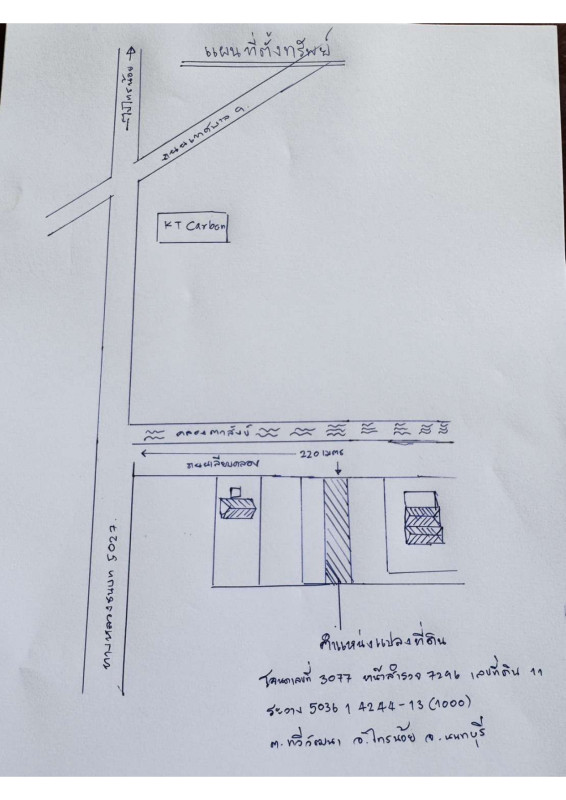 แผนที่ตั้งทรัพย์
ถนนเทศบาล 9
KT Carbon
คลองตาสังข์
220 เมตร
ถนนเลียบคลอง
ทางหลวงชนบท 5027
ตำแหน่งแปลงที่ดิน
โฉนดเลขที่ 3077 หน้าสำรวจ 7296 เลขที่ดิน 11
ระวาง 5036 I 4244-13 (1000)
ต. ทวีวัฒนา อ. ไทรน้อย จ. นนทบุรี